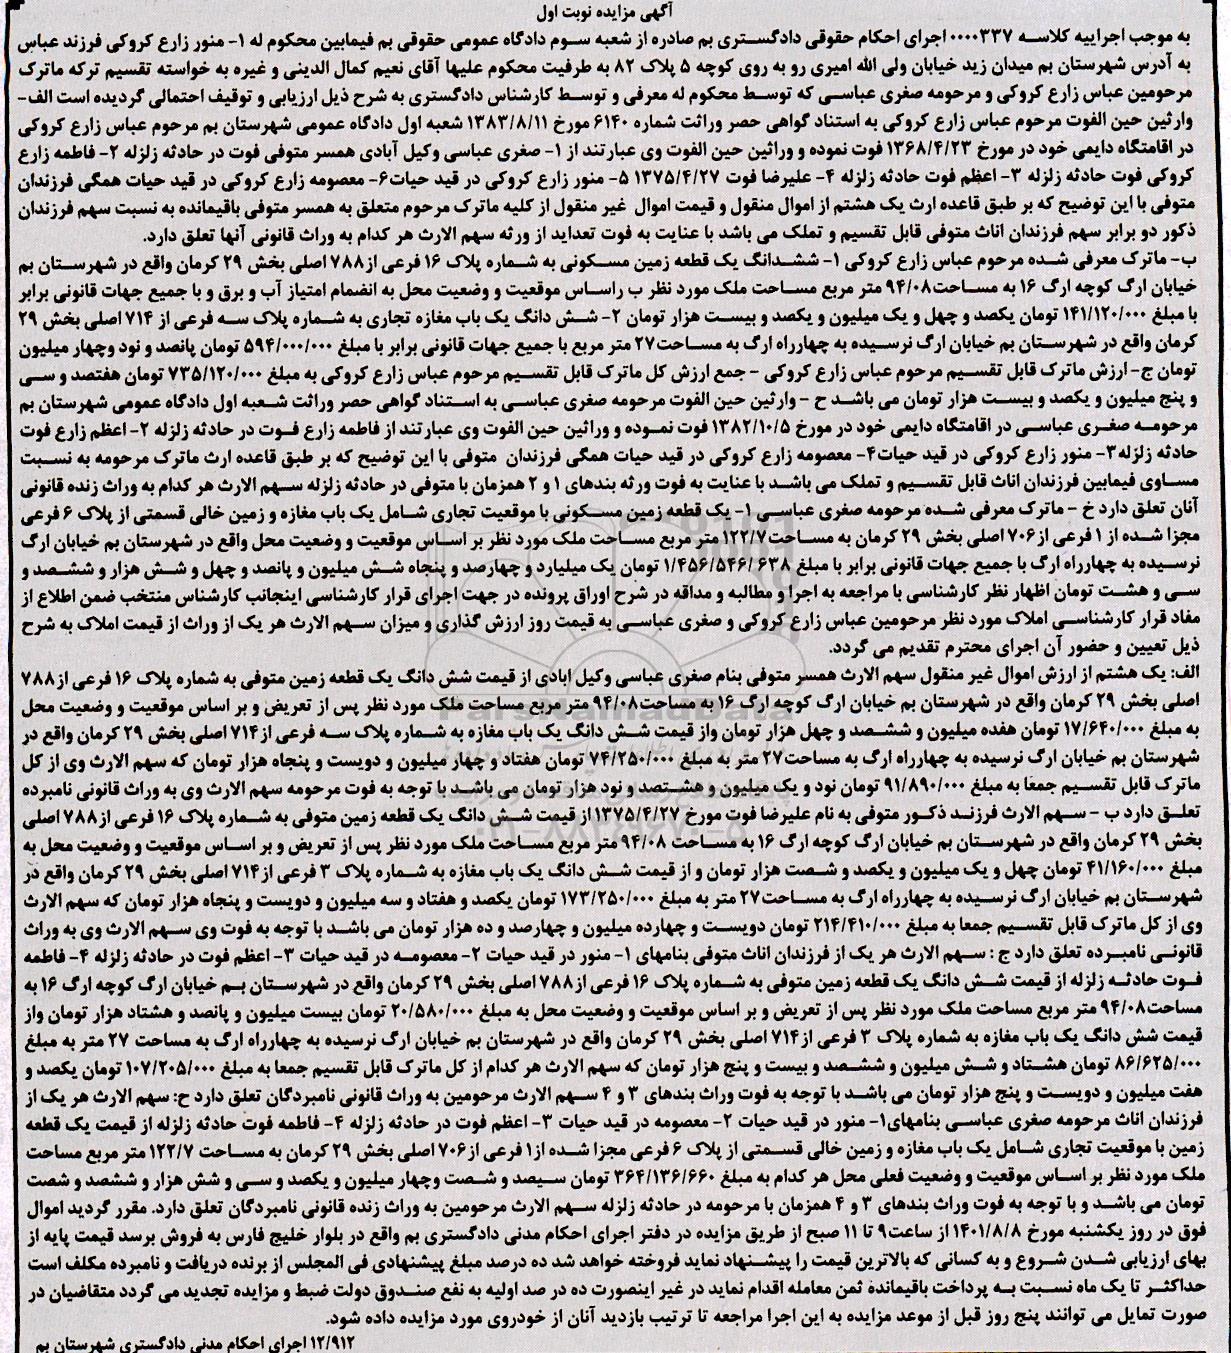 آگهی مزایده نوبت اول
به موجب اجراییه کلاسه ۰۰۰۰۳۳۷ اجرای احکام حقوقی دادگستری بم صادره از شعبه سوم دادگاه عمومی حقوقی بم فیمابین محکوم له ۱- منور زارع کروکی فرزند عباس
به آدرس شهرستان بم میدان زید خیابان ولی الله امیری رو به روی کوچه ۵ پلاک ۸۲ به طرفیت محکوم علیها آقای نعیم کمال الدینی و غیره به خواسته تقسیم ترکه ماترک
مرحومین عباس زارع کروکی و مرحومه صغری عباسی که توسط محکوم له معرفی و توسط کارشناس دادگستری به شرح ذیل ارزیابی و توقیف احتمالی گردیده است الف-
وارثین حین الفوت مرحوم عباس زارع کروکی به استناد گواهی حصر وراثت شماره ۶۱۴۰ مورخ ۱۳۸۳/۸/۱۱ شعبه اول دادگاه عمومی شهرستان بم مرحوم عباس زارع کروکی
در اقامتگاه دایمی خود در مورخ ۱۳۶۸/۴/۲۳ فوت نموده و وراثین حین الفوت وی عبارتند از ۱- صغری عباسی وکیل آبادی همسر متوفی فوت در حادثه زلزله ۲- فاطمه زارع
کروکی فوت حادثه زلزله ۳- اعظم فوت حادثه زلزله ۴- علیرضا فوت ۱۳۷۵/۴/۲۷ ۵- منور زارع کروکی در قید حیات۶- معصومه زارع کروکی در قید حیات همگی فرزندان
متوفی با این توضیح که بر طبق قاعده ارث یک هشتم از اموال منقول و قیمت اموال غیر منقول از کلیه ماترک مرحوم متعلق به همسر متوفی باقیمانده به نسبت سهم فرزندان
ذکور دو برابر سهم فرزندان اناث متوفی قابل تقسیم و تملک می باشد با عنایت به فوت تعداید از ورثه سهم الارث هر کدام به وراث قانونی آنها تعلق دارد.
ب- ماترک معرفی شده مرحوم عباس زارع کروکی ۱- ششدانگ یک قطعه زمین مسکونی به شماره پلاک ۱۶ فرعی از۷۸۸ اصلی بخش ۲۹ کرمان واقع در شهرستان بم
خیابان ارگ کوچه ارگ ۱۶ به مساحت۹۴/۰۸ متر مربع مساحت ملک مورد نظر ب راساس موقعیت و وضعیت محل به انضمام امتیاز آب و برق و با جمیع جهات قانونی برابر
با مبلغ ۱۴۱/۱۲۰/۰۰۰ تومان یکصد و چهل و یک میلیون و یکصد و بیست هزار تومان ۲- شش دانگ یک باب مغازه تجاری به شماره پلاک سه فرعی از ۷۱۴ اصلی بخش ۲۹
کرمان واقع در شهرستان بم خیابان ارگ نرسیده به چهارراه ارگ به مساحت۲۷ متر مربع با جمیع جهات قانونی برابر با مبلغ ۵۹۴/۰۰۰/۰۰۰ تومان پانصد و نود وچهار میلیون
تومان ج- ارزش ماترک قابل تقسیم مرحوم عباس زارع کروکی - جمع ارزش کل ماترک قابل تقسیم مرحوم عباس زارع کروکی به مبلغ ۷۳۵/۱۲۰/۰۰۰ تومان هفتصد و سی
و پنج میلیون و یکصد و بیست هزار تومان می باشد ح - وارثین حین الفوت مرحومه صغری عباسی به استناد گواهی حصر وراثت شعبه اول دادگاه عمومی شهرستان بم
مرحومه صغری عباسی در اقامتگاه دایمی خود در مورخ ۱۳۸۲/۱۰/۵ فوت نموده و وراثین حین الفوت وی عبارتند از فاطمه زارع فوت در حادثه زلزله ۲- اعظم زارع فوت
حادثه زلزله۳- منور زارع کروکی در قید حیات۴- معصومه زارع کروکی در قید حیات همگی فرزندان متوفی با این توضیح که بر طبق قاعده ارث ماترک مرحومه به نسبت
مساوی فیمابین فرزندان اناث قابل تقسیم و تملک می باشد با عنایت به فوت ورثه بندهای ۱ و ۲ همزمان با متوفی در حادثه زلزله سهم الارث هر کدام به وراث زنده قانونی
آنان تعلق دارد خ - ماترک معرفی شده مرحومه صغری عباسی ۱- یک قطعه زمین مسکونی با موقعیت تجاری شامل یک باب مغازه و زمین خالی قسمتی از پلاک ۶ فرعی
مجزا شده از ۱ فرعی از۷۰۶ اصلی بخش ۲۹ کرمان به مساحت۱۲۲/۷ متر مربع مساحت ملک مورد نظر بر اساس موقعیت و وضعیت محل واقع در شهرستان بم خیابان ارگ
نرسیده به چهارراه ارگ با جمیع جهات قانونی برابر با مبلغ ۱/۴۵۶/۵۴۶/۶۳۸ تومان یک میلیارد و چهارصد و پنجاه شش میلیون و پانصد و چهل و شش هزار و ششصد و
سی و هشت تومان اظهار نظر کارشناسی با مراجعه به اجرا و مطالبه و مداقه در شرح اوراق پرونده در جهت اجرای قرار کارشناسی اینجانب کارشناس منتخب ضمن اطلاع از
مفاد قرار کارشناسی املاک مورد نظر مرحومین عباس زارع کروکی و صغری عباسی به قیمت روز ارزش گذاری و میزان سهم الارث هر یک از وراث از قیمت املاک به شرح
ذیل تعیین و حضور آن اجرای محترم تقدیم می گردد.
الف: یک هشتم از ارزش اموال غیر منقول سهم الارث همسر متوفی بنام صغری عباسی وکیل ابادی از قیمت شش دانگ یک قطعه زمین متوفی به شماره پلاک ۱۶ فرعی از۷۸۸
اصلی بخش ۲۹ کرمان واقع در شهرستان بم خیابان ارگ کوچه ارگ ۱۶ به مساحت۹۴/۰۸ متر مربع مساحت ملک مورد نظر پس از تعریض و بر اساس موقعیت و وضعیت محل
به مبلغ ۱۷/۶۴۰/۰۰۰ تومان هفده میلیون و ششصد و چهل هزار تومان واز قیمت شش دانگ یک باب مغازه به شماره پلاک سه فرعی از۷۱۴ اصلی بخش ۲۹ کرمان واقع در
شهرستان بم خیابان ارگ نرسیده به چهارراه ارگ به مساحت۲۷ متر به مبلغ ۷۴/۲۵۰/۰۰۰ تومان هفتاد و چهار میلیون و دویست و پنجاه هزار تومان که سهم الارث وی از کل
ماترک قابل تقسیم جمعا به مبلغ ۹۱/۸۹۰/۰۰۰ تومان نود و یک میلیون و هشتصد و نود هزار تومان می باشد با توجه به فوت مرحومه سهم الارث وی به وراث قانونی نامبرده
تعلق دارد ب - سهم الارث فرزند ذکور متوفی به نام علیرضا فوت مورخ ۱۳۷۵/۴/۲۷ از قیمت شش دانگ یک قطعه زمین متوفی به شماره پلاک ۱۶ فرعی از۷۸۸ اصلی
بخش ۲۹ کرمان واقع در شهرستان بم خیابان ارگ کوچه ارگ ۱۶ به مساحت ۹۴/۰۸ متر مربع مساحت ملک مورد نظر پس از تعریض و بر اساس موقعیت و وضعیت محل به
مبلغ ۴۱/۱۶۰/۰۰۰ تومان چهل و یک میلیون و یکصد و شصت هزار تومان و از قیمت شش دانگ یک باب مغازه به شماره پلاک ۳ فرعی از۷۱۴ اصلی بخش ۲۹ کرمان واقع در
شهرستان بم خیابان ارگ نرسیده به چهارراه ارگ به مساحت۲۷ متر به مبلغ ۱۷۳/۲۵۰/۰۰۰ تومان یکصد و هفتاد و سه میلیون و دویست و پنجاه هزار تومان که سهم الارث
وی از کل ماترک قابل تقسیم جمعا به مبلغ ۲۱۴/۴۱۰/۰۰۰ تومان دویست و چهارده میلیون و چهارصد و ده هزار تومان می باشد با توجه به فوت وی سهم الارث وی به وراث
قانونی نامبرده تعلق دارد ج : سهم الارث هر یک از فرزندان اناث متوفی بنامهای ۱- منور در قید حیات ۲- معصومه در قید حیات ۳- اعظم فوت در حادثه زلزله ۴- فاطمه
فوت حادثه زلزله از قیمت شش دانگ یک قطعه زمین متوفی به شماره پلاک ۱۶ فرعی از۷۸۸ اصلی بخش ۲۹ کرمان واقع در شهرستان بم خیابان ارگ کوچه ارگ ۱۶ به
مساحت۹۴/۰۸ متر مربع مساحت ملک مورد نظر پس از تعریض و بر اساس موقعیت و وضعیت محل به مبلغ ۲۰/۵۸۰/۰۰۰ تومان بیست میلیون و پانصد و هشتاد هزار تومان واز
قیمت شش دانگ یک باب مغازه به شماره پلاک ۳ فرعی از۷۱۴ اصلی بخش ۲۹ کرمان واقع در شهرستان بم خیابان ارگ نرسیده به چهارراه ارگ به مساحت ۲۷ متر به مبلغ
۸۶/۶۲۵/۰۰۰ تومان هشتاد و شش میلیون و ششصد و بیست و پنج هزار تومان که سهم الارث هر کدام از کل ماترک قابل تقسیم جمعا به مبلغ ۱۰۷/۲۰۵/۰۰۰ تومان یکصد و
هفت میلیون و دویست و پنج هزار تومان می باشد با توجه به فوت وراث بندهای ۳ و ۴ سهم الارث مرحومین به وراث قانونی نامبردگان تعلق دارد ح: سهم الارث هر یک از
فرزندان اناث مرحومه صغری عباسی بنامهای۱- منور در قید حیات ۲- معصومه در قید حیات ۳- اعظم فوت در حادثه زلزله ۴- فاطمه فوت حادثه زلزله از قیمت یک قطعه
زمین با موقعیت تجاری شامل یک باب مغازه و زمین خالی قسمتی از پلاک ۶ فرعی مجزا شده از۱ فرعی از۷۰۶ اصلی بخش ۲۹ کرمان به مساحت ۱۲۲/۷ متر مربع مساحت
ملک مورد نظر بر اساس موقعیت و وضعیت فعلی محل هر کدام به مبلغ ۳۶۴/۱۳۶/۶۶۰ تومان سیصد و شصت وچهار میلیون و یکصد و سی و شش هزار و ششصد و شصت
تومان می باشد و با توجه به فوت وراث بندهای ۳ و ۴ همزمان با مرحومه در حادثه زلزله سهم الارث مرحومین به وراث زنده قانونی نامبردگان تعلق دارد. مقرر گردید اموال
فوق در روز یکشنبه مورخ ۱۴۰۱/۸/۸ از ساعت۹ تا ۱۱ صبح از طریق مزایده در دفتر اجرای احکام مدنی دادگستری بم واقع در بلوار خلیج فارس به فروش برسد قیمت پایه از
بهای ارزیابی شدن شروع و به کسانی که بالاترین قیمت را پیشنهاد نماید فروخته خواهد شد ده درصد مبلغ پیشنهادی فی المجلس از برنده دریافت و نامبرده مکلف است
حداکثر تا یک ماه نسبت به پرداخت باقیمانده ثمن معامله اقدام نماید در غیر اینصورت ده در صد اولیه به نفع صندوق دولت ضبط و مزایده تجدید می گردد متقاضیان در
صورت تمایل می توانند پنج روز قبل از موعد مزایده به این اجرا مراجعه تا ترتیب بازدید آنان از خودروی مورد مزایده داده شود.
۱۲/۹۱۲ اجرای احکام مدنی دادگستری شهرستان بم
ParsNamadData
۰۲۱-۸۸۳۴۹۶۷۰-۵